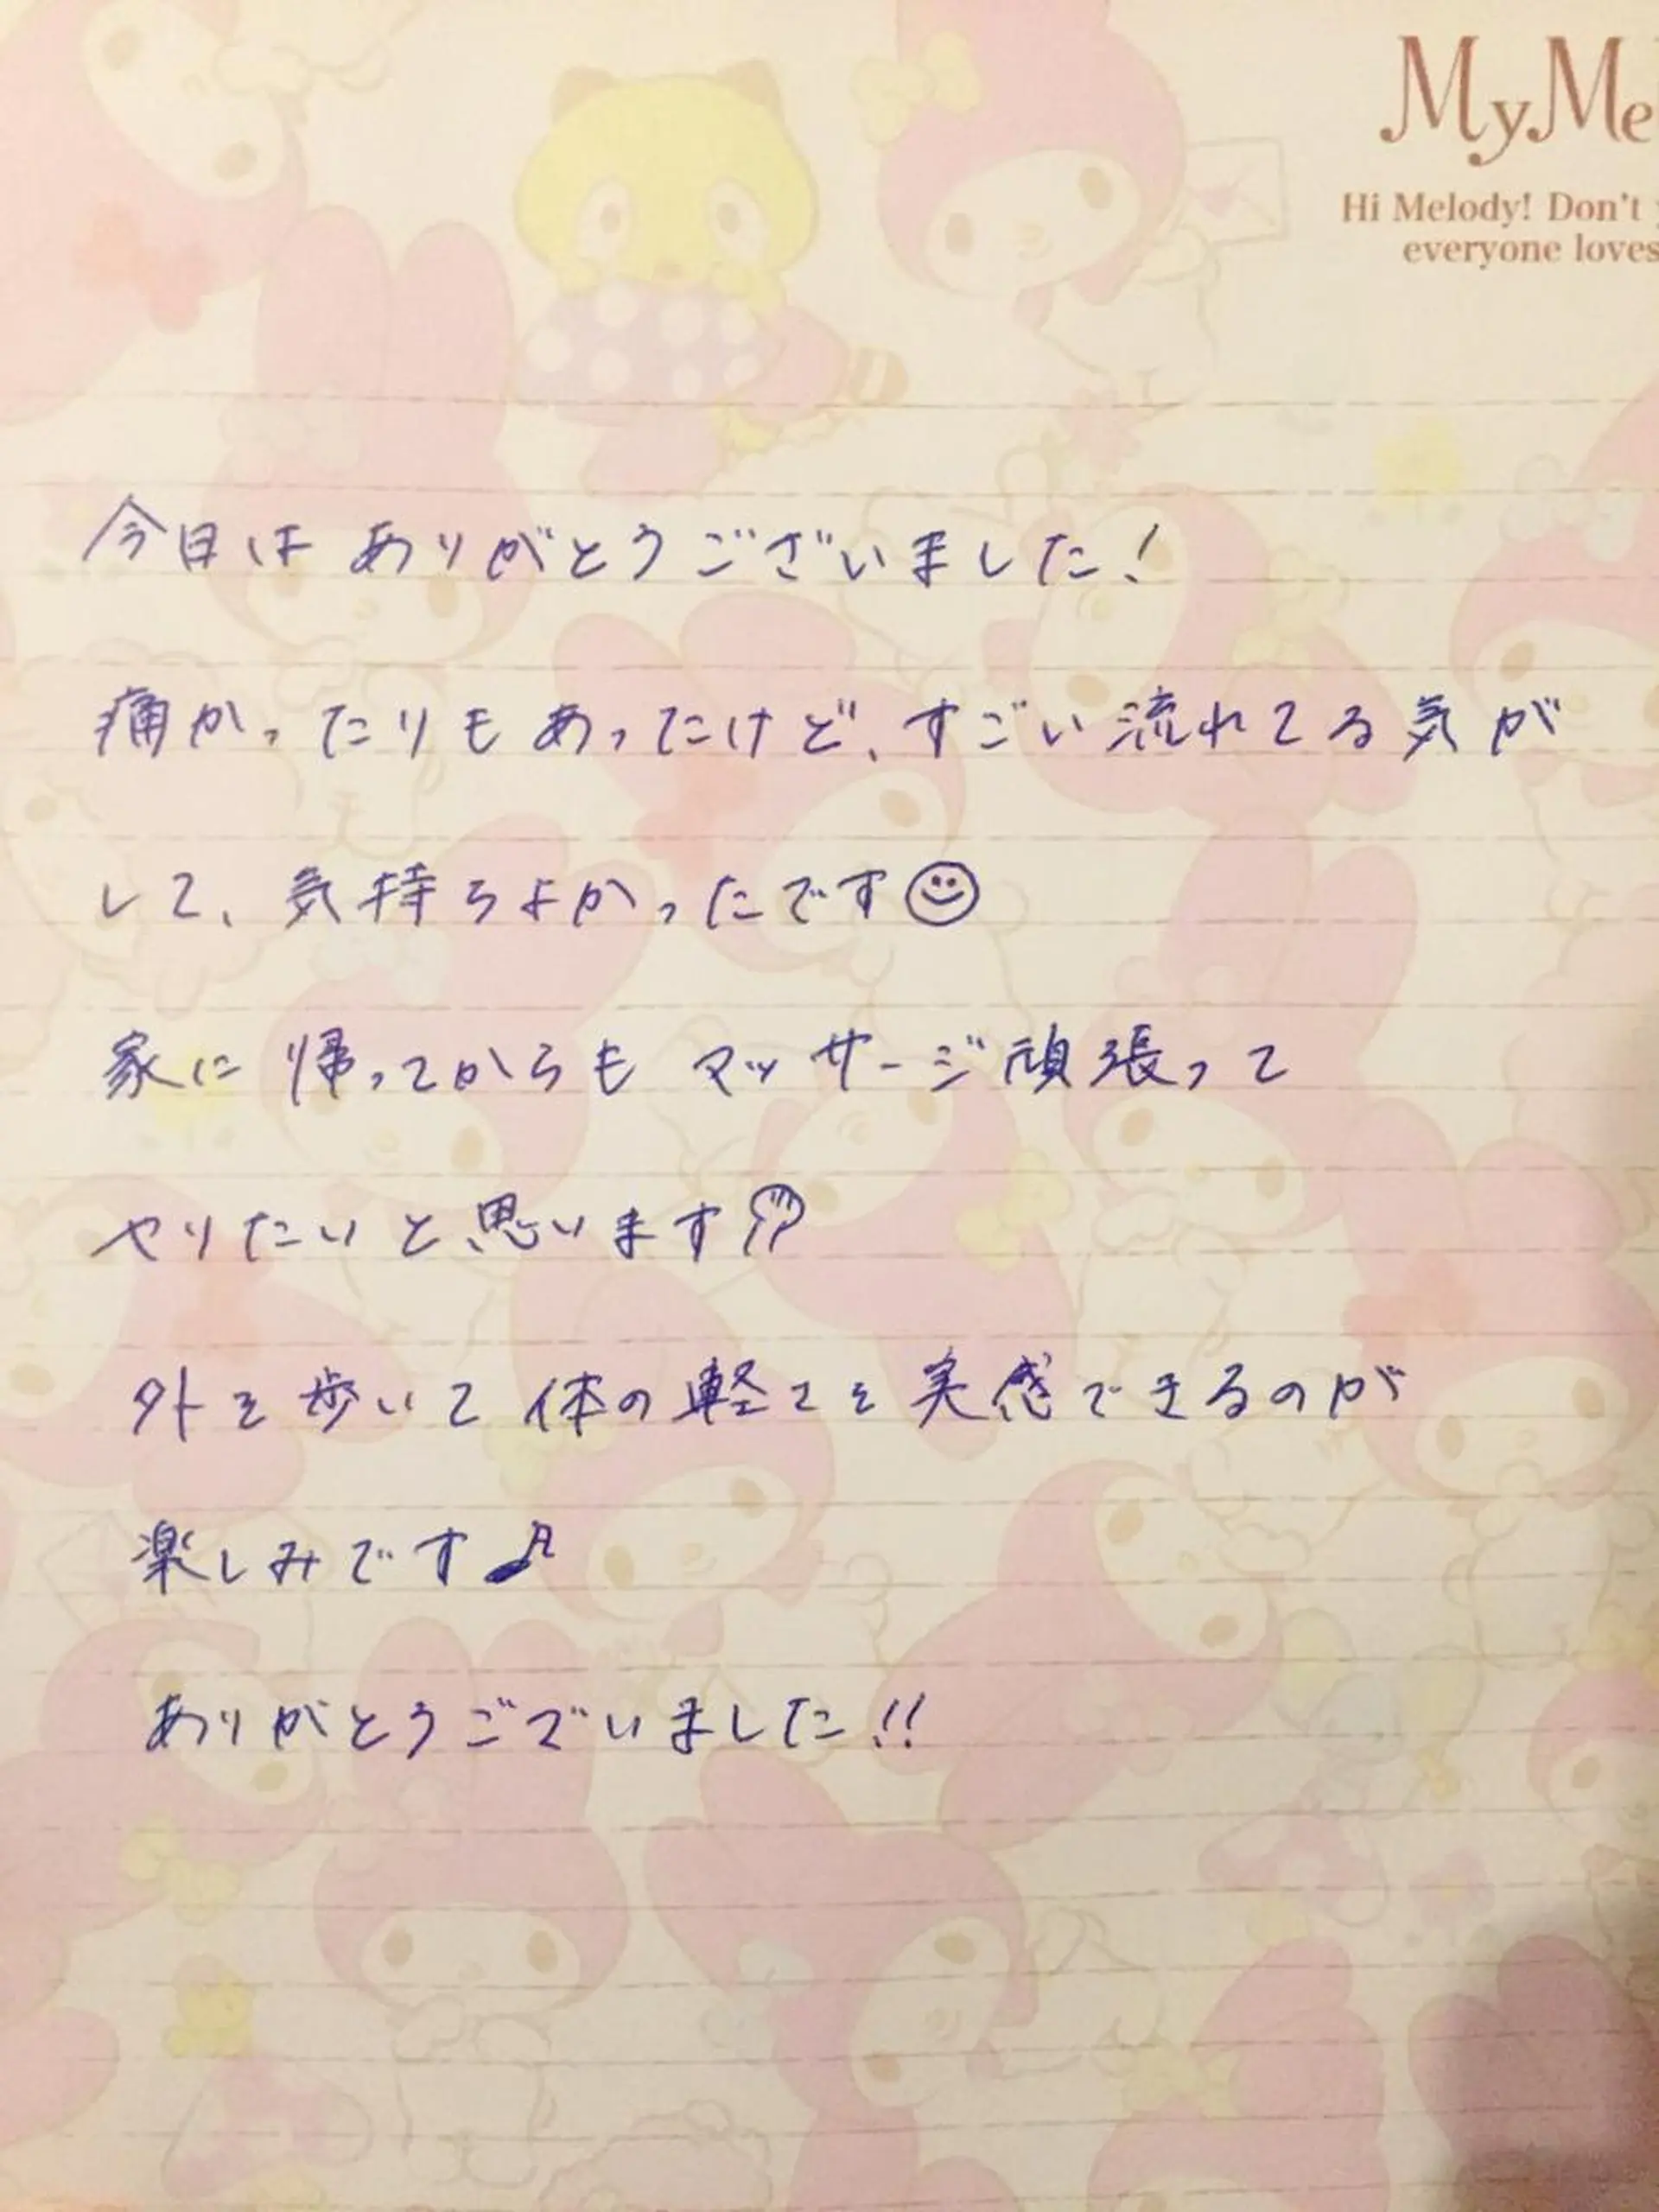 MyMe
Hi Melody! Don't
everyone loves
今日は ありがとうございました!
痛かったりもあったけど、すごい流れてる気が
して、気持ちよかったです☺
家に帰ってからもマッサージ頑張って
やりたいと思います
外を歩いて体の軽さを実感できるのが
楽しみです♪
ありがとうございました!!